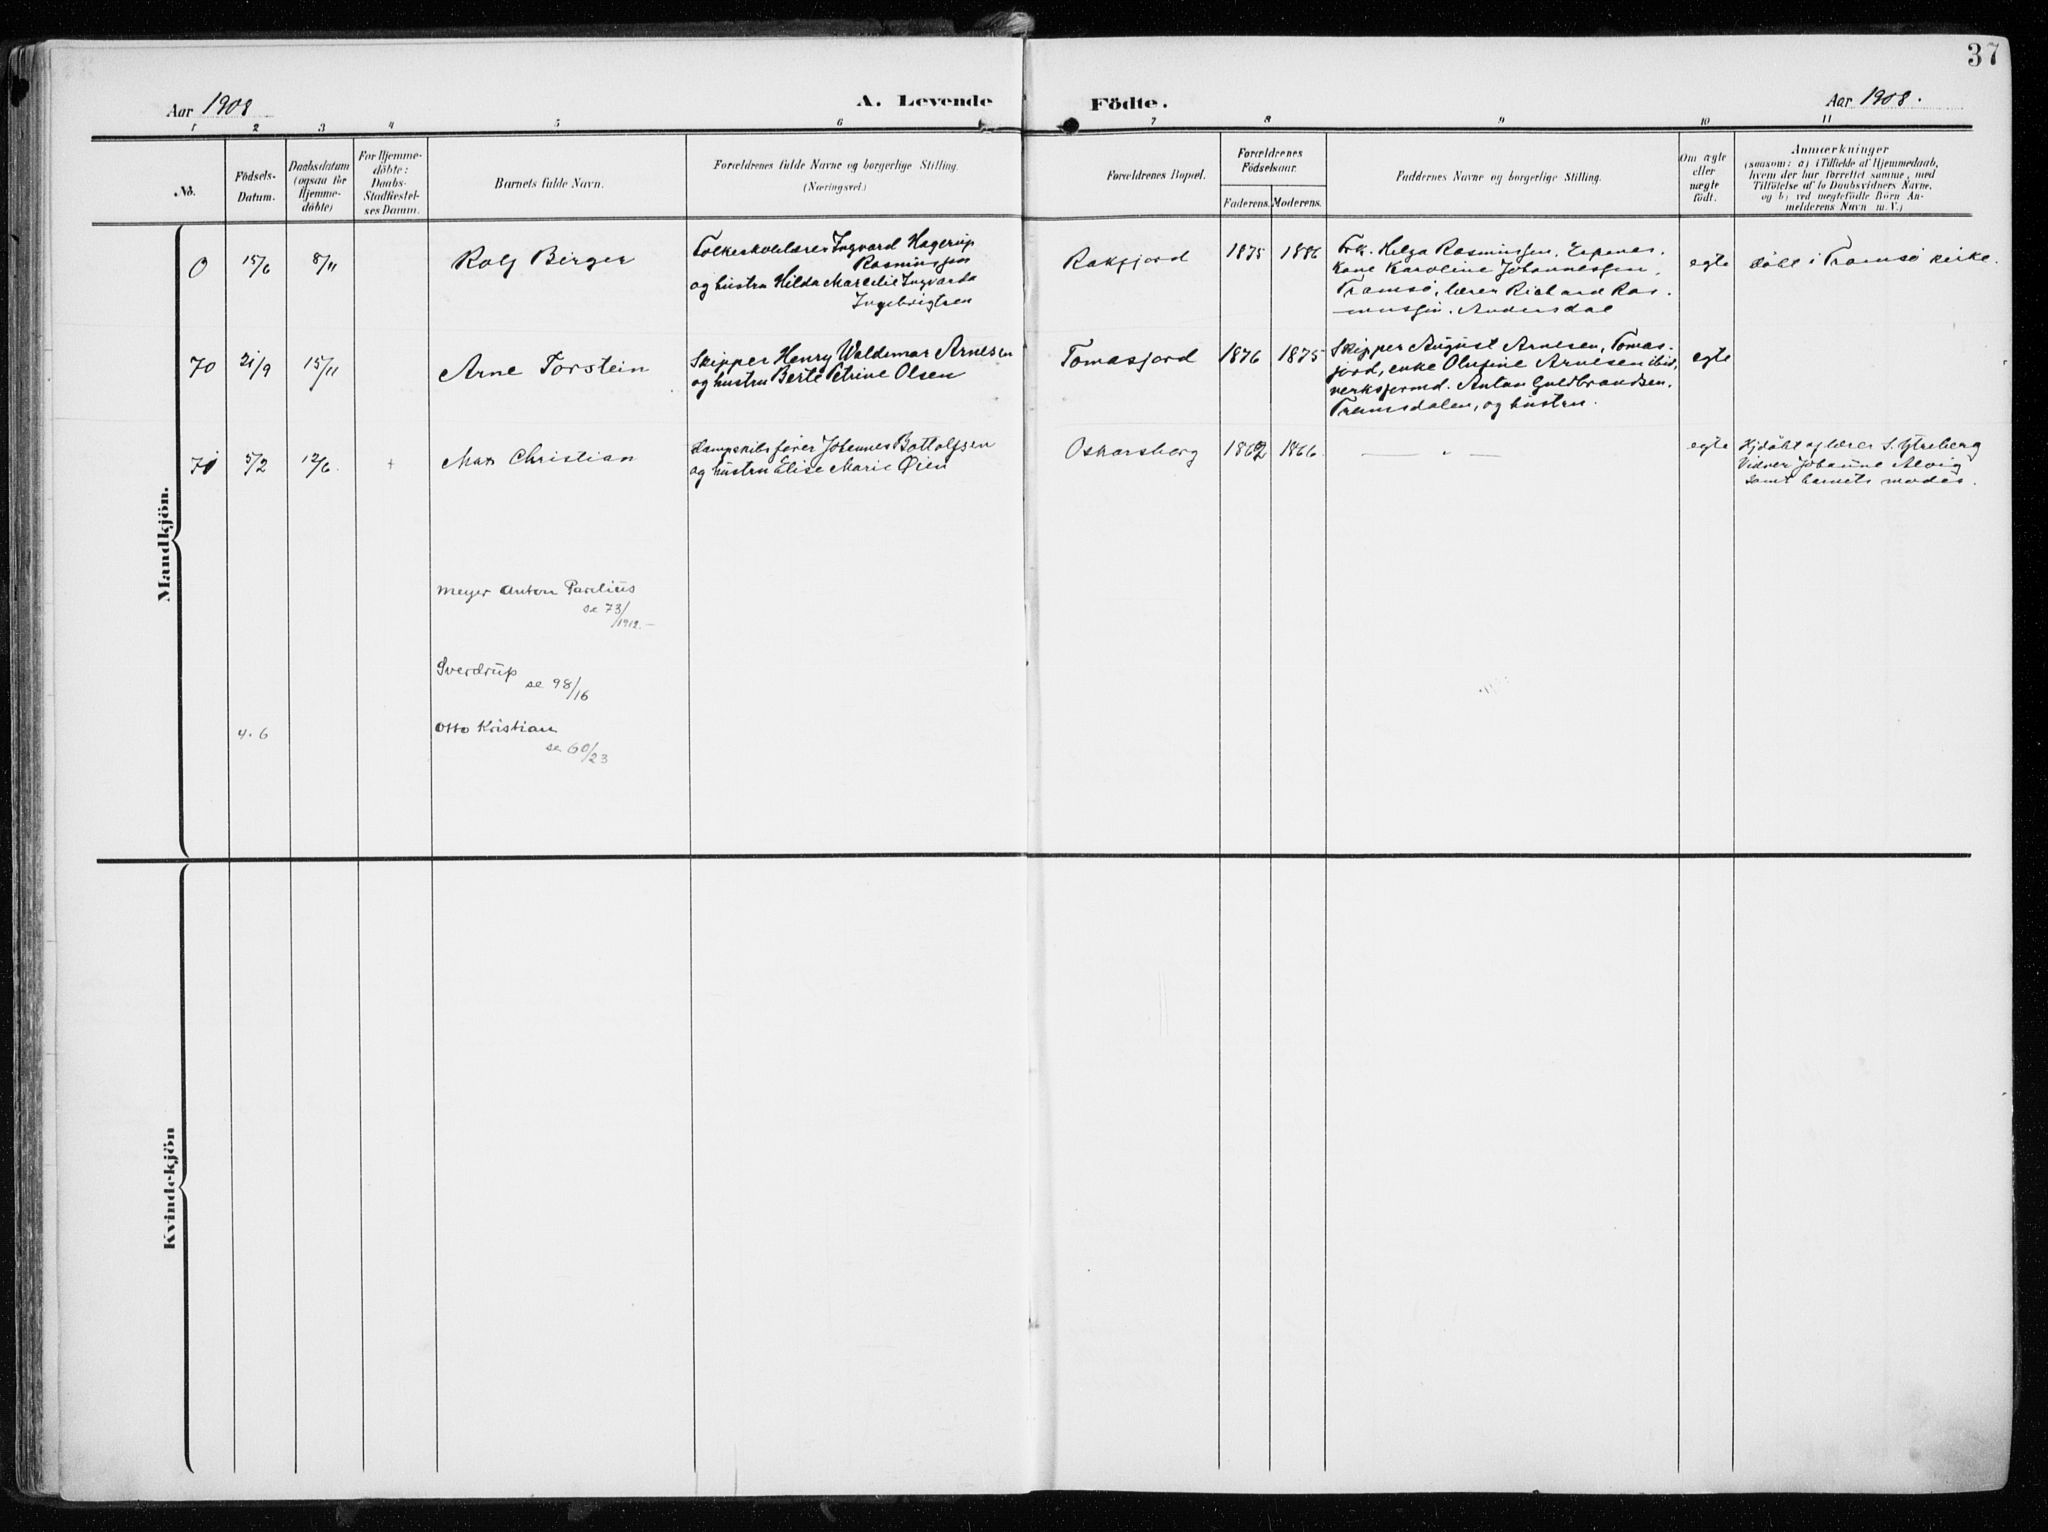 37
Aar 1908
A. Levende
Födte.
Aar 1908.
1 2 3 4 5 6 7 8 9 10 11
No.
Födsels-
Datum.
Daabsdatum
(ogsaa for
Hjemme-
döbte)
For Hjemme-
döbte:
Daabs-
Stadfæstel-
ses Datum.
Barnets fulde Navn.
Forældrenes fulde Navne og borgerlige Stilling.
(Næringsvei.)
Forældrenes Bopæl.
Forældrenes
Födselsaar.
Faderens. Moderens.
Faddernes Navne og borgerlige Stilling.
Om ægte
eller
uægte
födt.
Anmærkninger
(saasom: a) i Tilfælde af Hjemmedaab,
hvem der har forrettet samme, med
Tilföielse af to Daabsvidners Navne,
og b) ved uegtefödte Börn An-
melderens Navn m. V.)
Mandkjön.
0 15/6 8/11 Rolf Birger
Folkeskolelærer Ingvard Hagerup
Rasmussen
og hustru Hilda Marcelie Ingvarda
Ingebrigtsen
Rakfjord 1875 1886
Frk. Helga Rasmussen, Erpenes,
Kone Karoline Johannessen,
Tromsø, lærer Richard Ras-
mussen. Andersdal
egte døbt i Tromsø kirke.
70 21/9 15/11 Arne Torstein
Skipper Henry Waldemar Arnesen
og hustru Berte Petrine Olsen
Tomasjord 1876 1875
Skipper August Arnesen, Tomas-
jord, enke Olufine Arnesen ibid,
verksformd. Anton Guldbrandsen,
Tromsdalen, og hustru.
egte
71 5/2 12/6 + Max Christian
Dampskibsfører Johannes Bottolfsen
og hustru Elise Marie Øien
Oskarsberg 1862 1866
— " —
egte
Hjdøbt af lærer S. Ytreberg
Vidner Johanne Alvig
samt barnets moder.
Meyer Anton Parelius
se 73/1912.-
Sverdrup
se 98/16
4.6 Otto Kristian
se 60/23
Kvindekjön